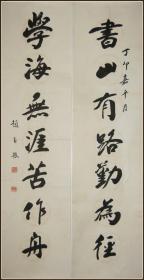 書山有路勤為徑
丁卯嘉平月
學海無涯苦作舟